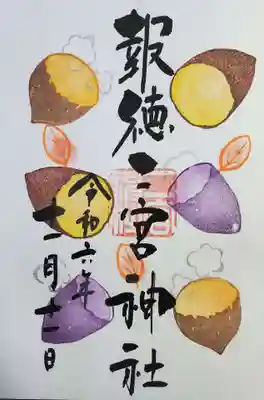 報徳二宮神社
令和六年
十二月十二日